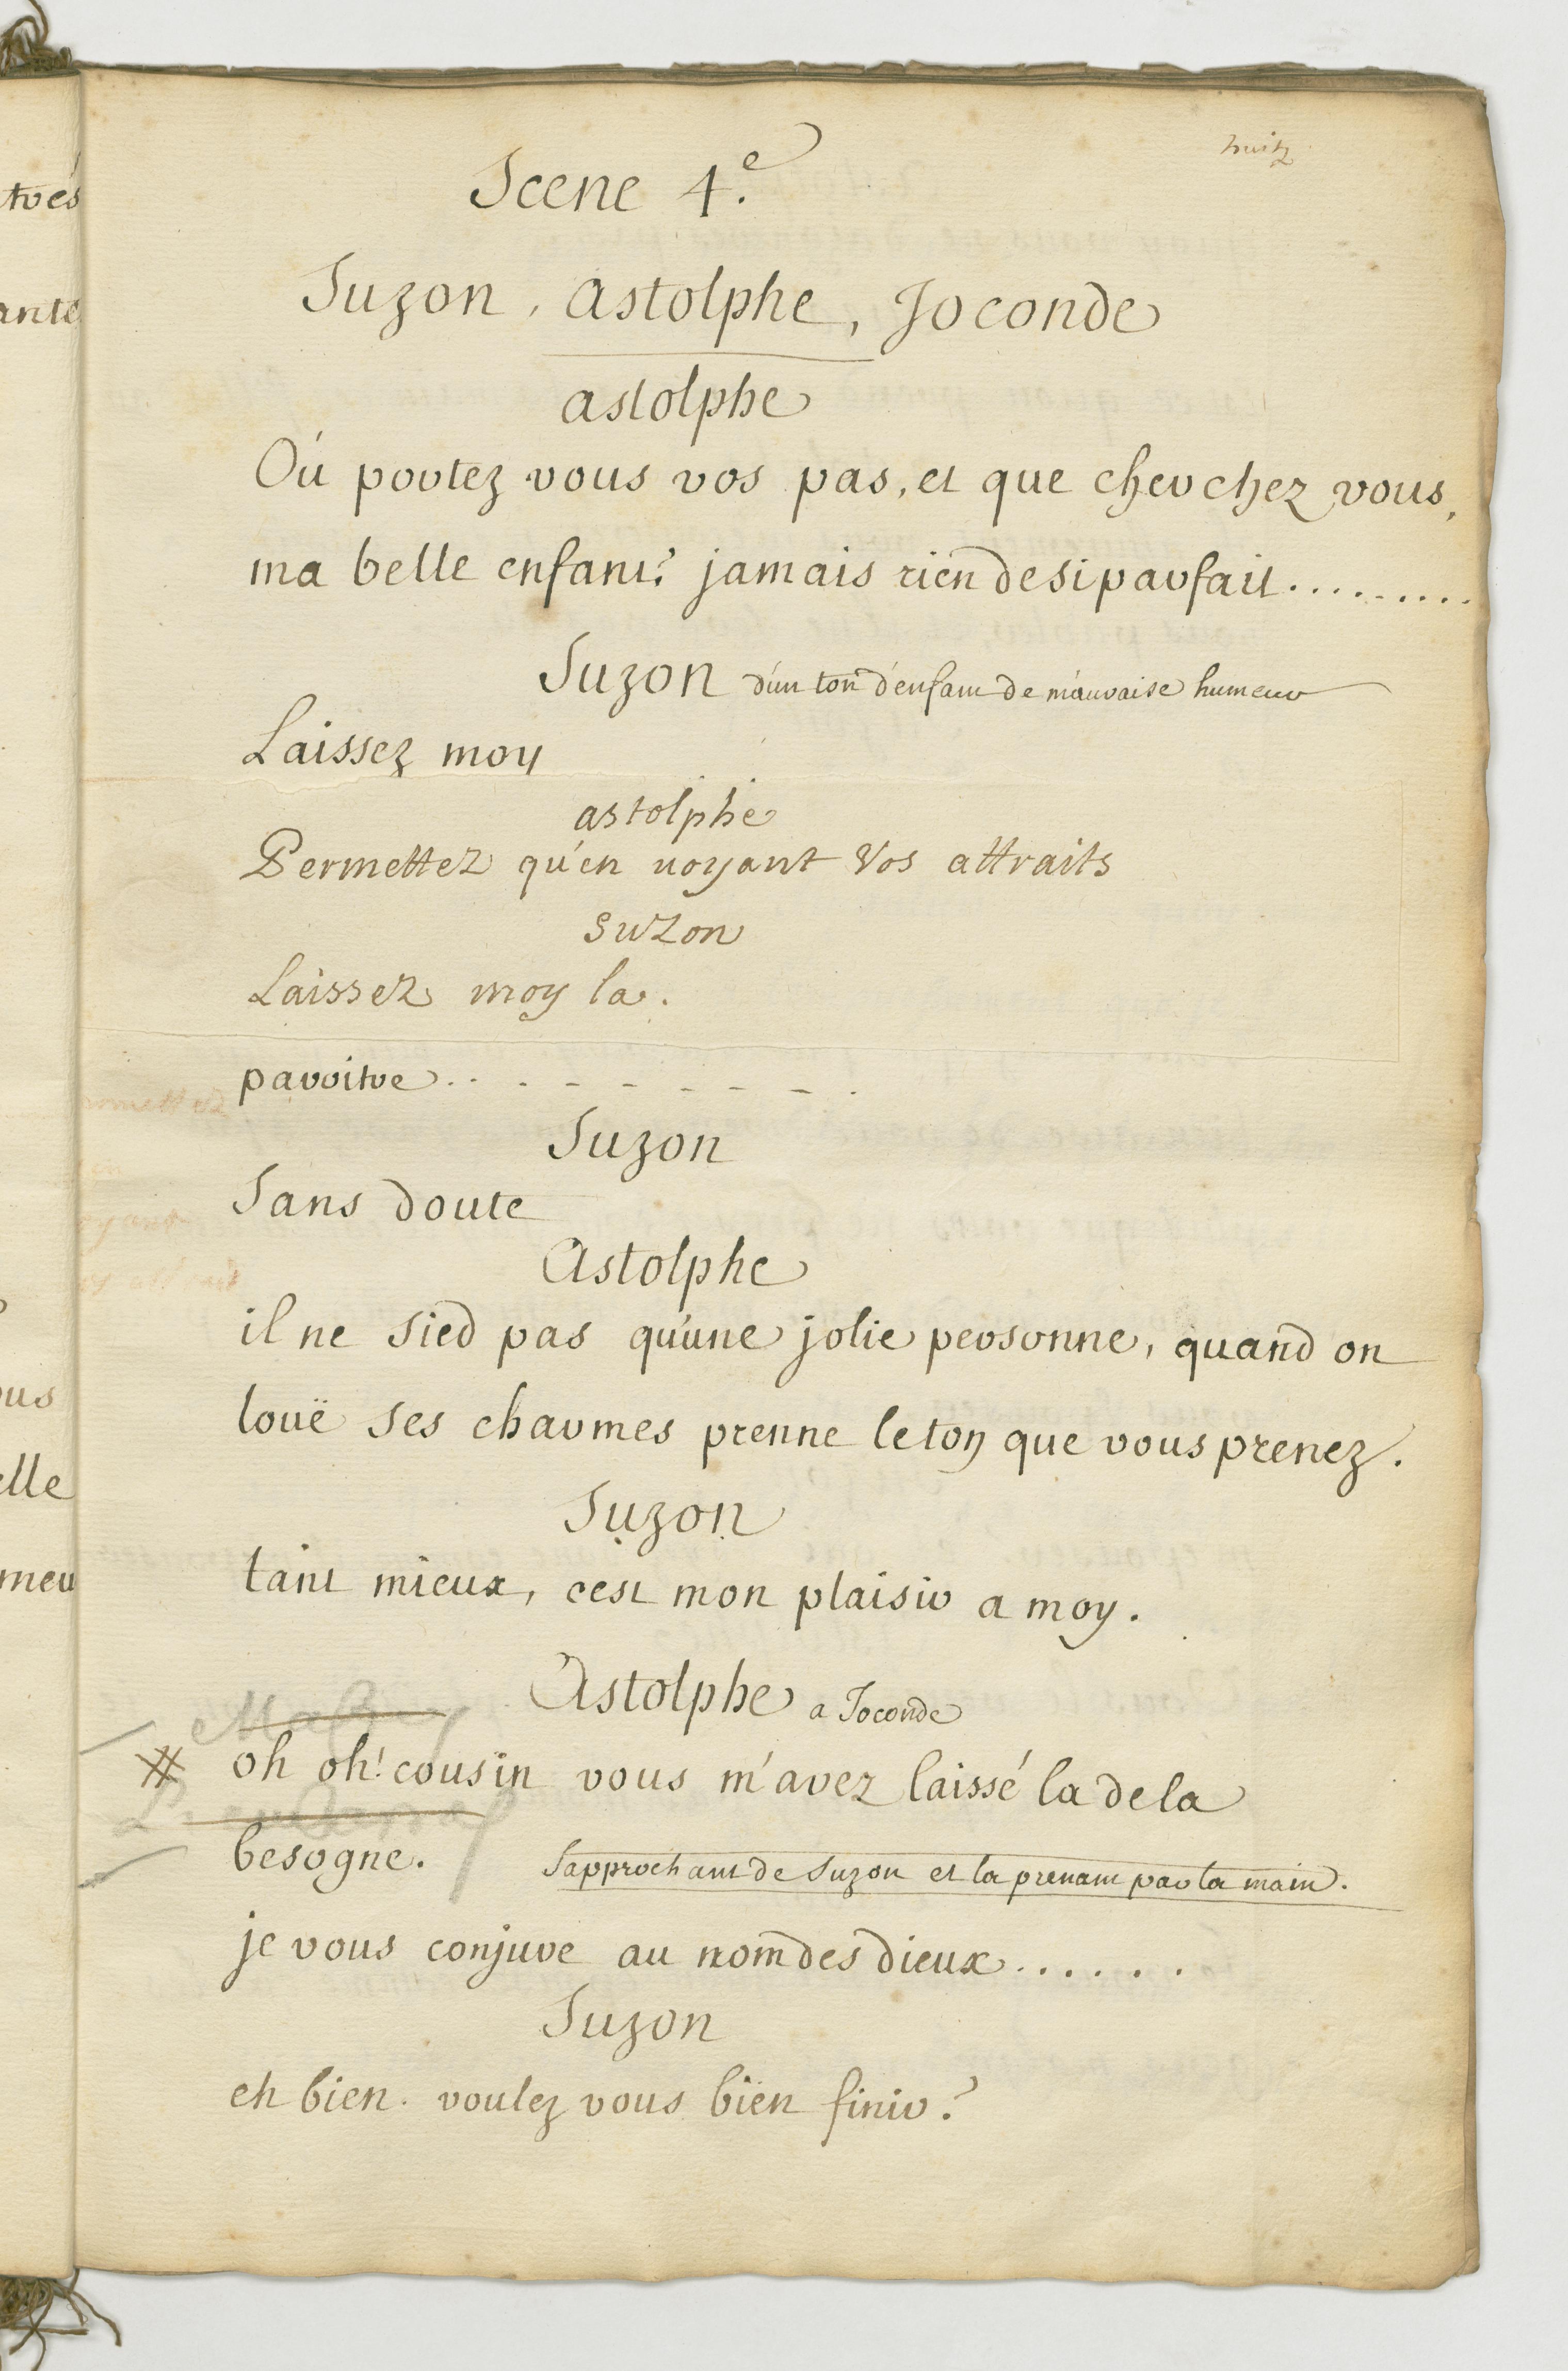 huit
Scene 4.e
Suzon, astolphe, Joconde
astolphe
Où portez vous vos pas, et que cherchez vous,
ma belle enfant? jamais rien de si parfait.........
Suzon d'un ton d'enfant de mauvaise humeur
Laissez moy
astolphe
Permettez qu'en voyant Vos attraits
Suzon
Laissez moy la.
paroitre.........
Suzon
Sans doute
Astolphe
il ne sied pas qu'une jolie personne, quand on
louë ses charmes prenne le ton que vous prenez.
Suzon
tant mieux, cest mon plaisir a moy.
Astolphe a Joconde
oh oh! cousin vous m'avez laissé la de la
besogne. Sapprochant de Suzon et la prenant par la main.
je vous conjure au nom des dieux......
Suzon
eh bien. voulez vous bien finir?